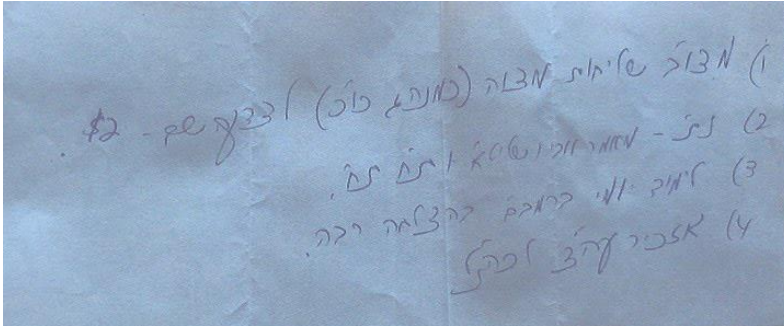 1) מצו"ב שליחות מצוה (כמנהג כו"כ) לצדקה שם - $2.
2) נת' - מאמר אוה"ו שליט"א ות"ח ת"ח.
3) לימוד יומי ברמב"ם בהצלחה רבה.
4) אזכיר עה"צ לכהנ"ל